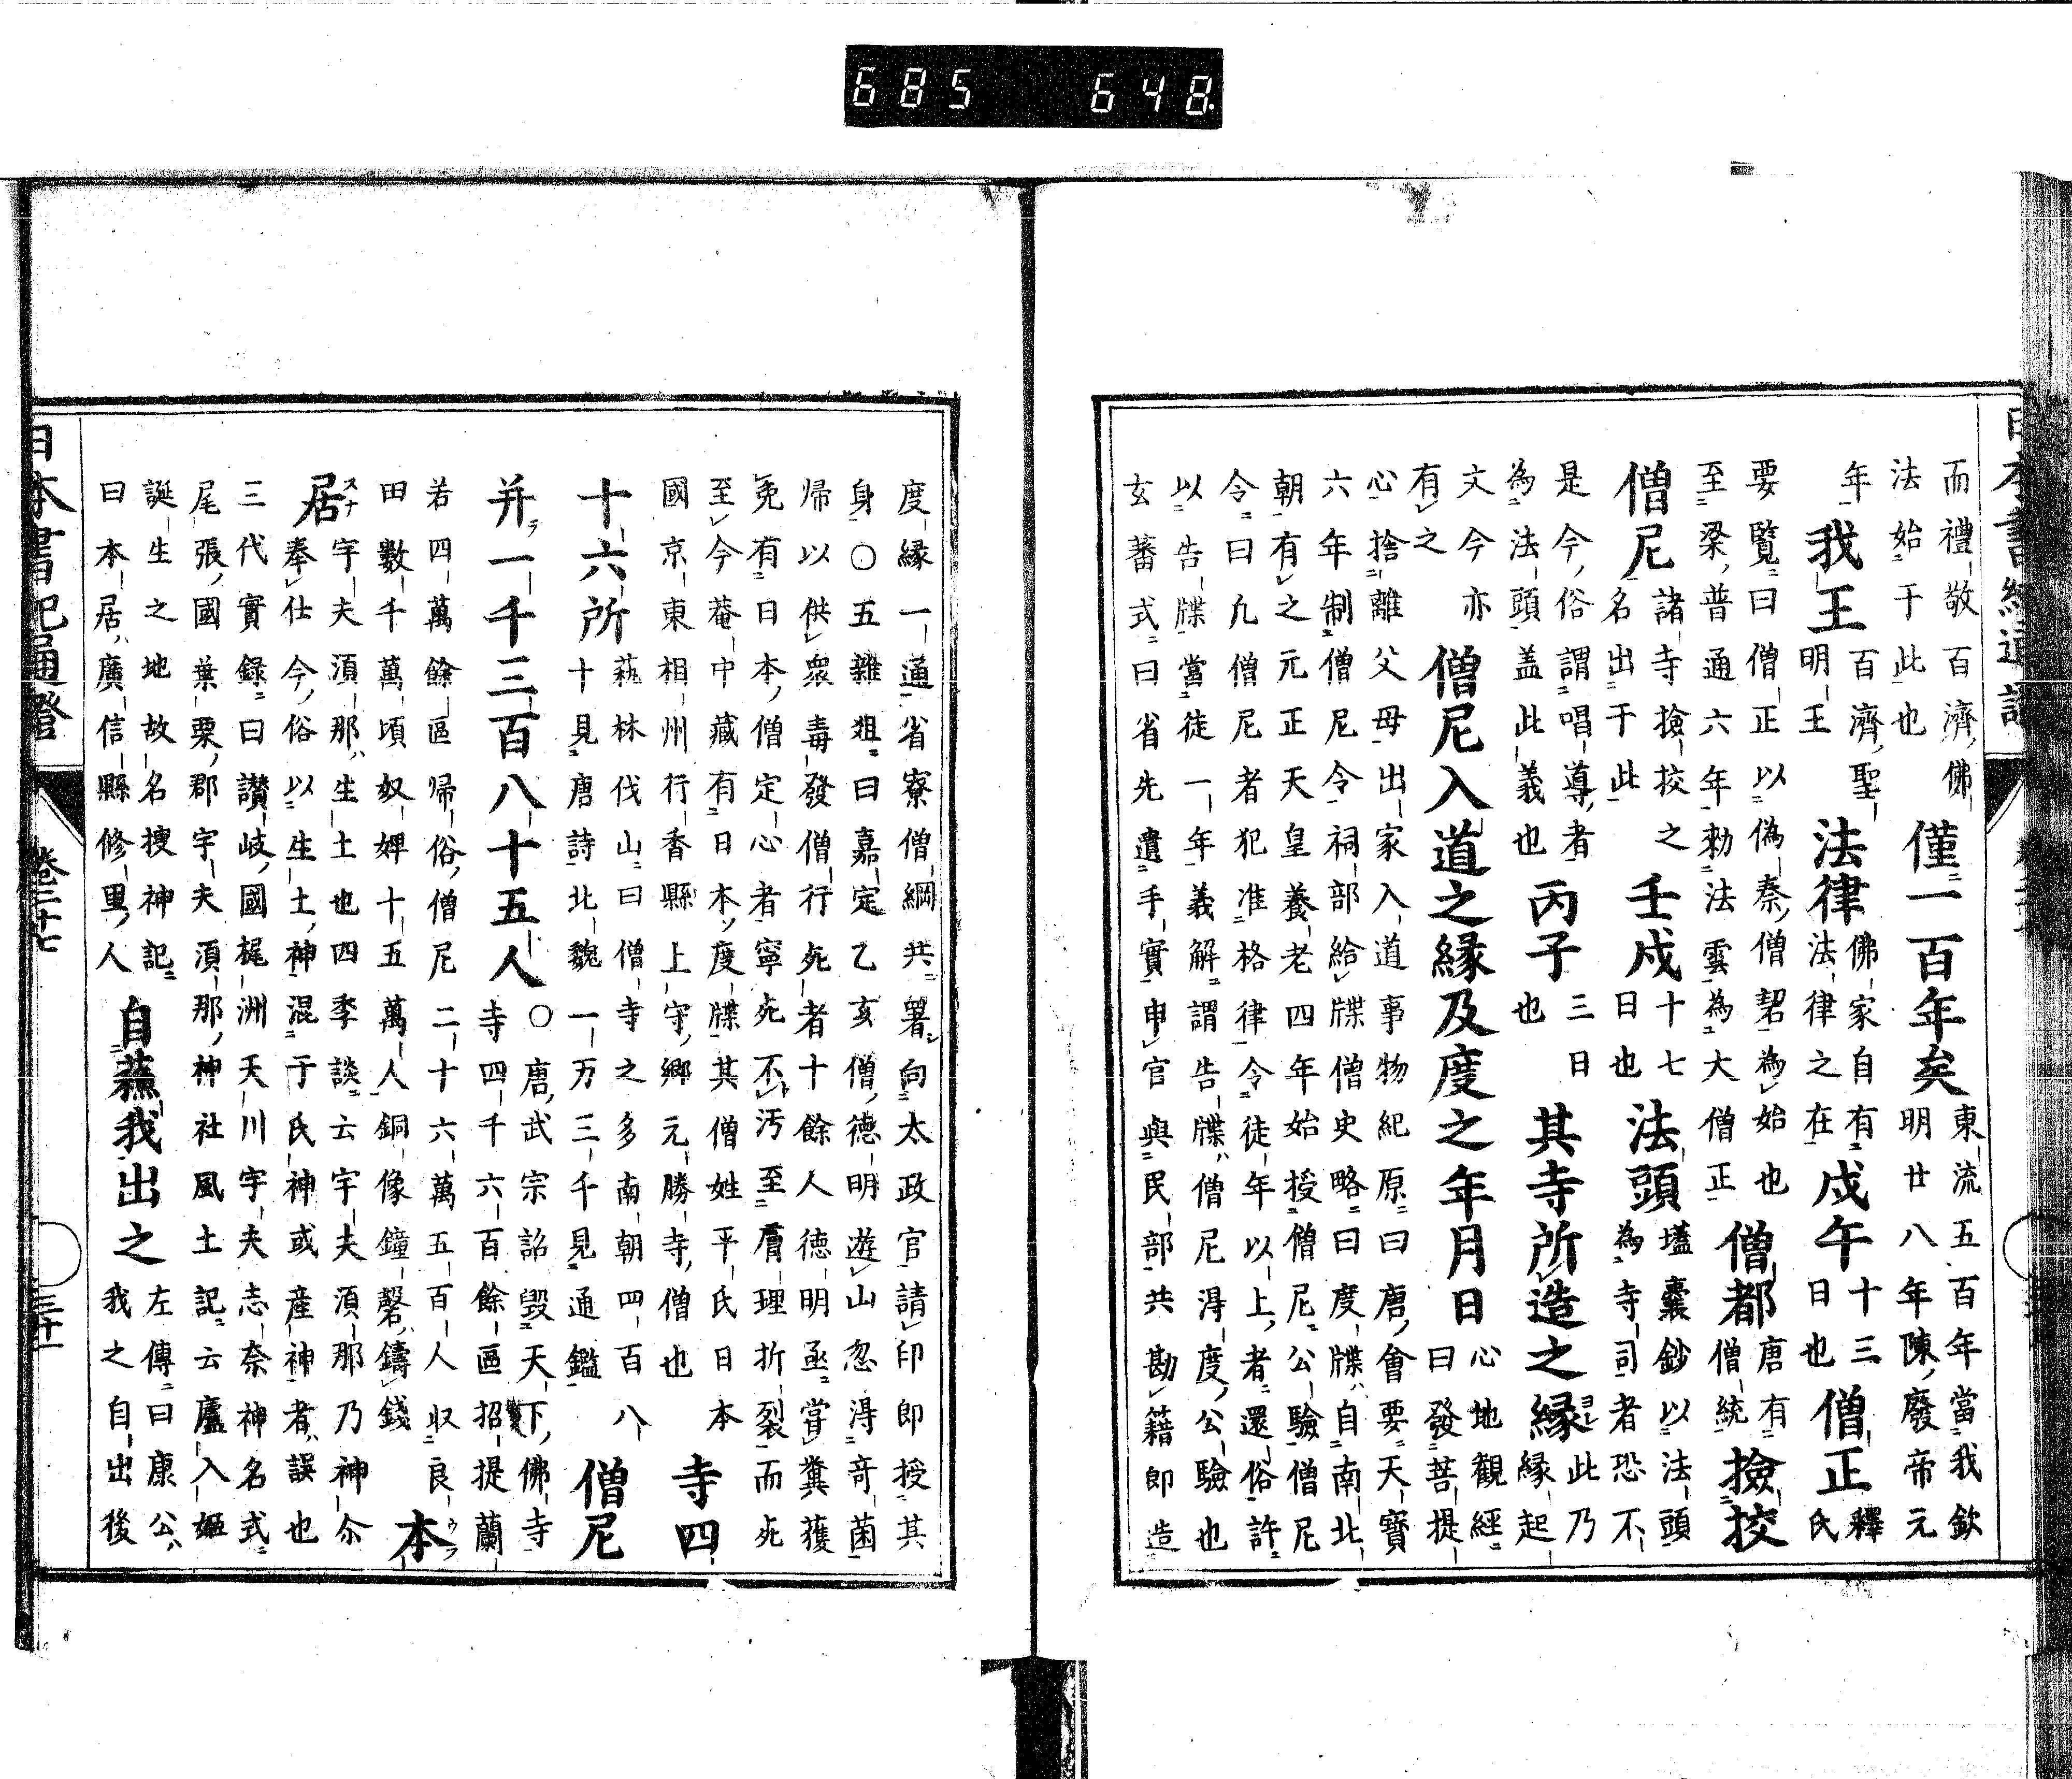 而禮敬百濟佛
法始于此也
僅一百年矣
東流五百年當我欽
明廿八年陳廢帝元
年
我王
百濟聖
明王
法律
佛家自有
法律之在
戍午
十三
日也
僧正
釋
氏
要覽曰僧正以偽秦僧䂮為始也
至梁普通六年勅法雲為大僧正
僧都
唐有
僧統
撿挍
僧尼
諸寺撿挍之
名出于此
壬戍
十七
日也
法頭
壒囊鈔以法頭
為寺司者恐不
是今俗謂唱導者
為法頭盖此義也
丙子
三日
也
其寺所造之縁
此乃
縁起
文今亦
有之
僧尼入道之縁及度之年月日
心地觀經
曰發菩提
心捨離父母出家入道事物紀原曰唐會要天寶
六年制僧尼令祠部給牒僧史略曰度牒自南北
朝有之元正天皇養老四年始授僧尼公驗僧尼
令曰凡僧尼者犯准格律令徒年以上者還俗許
以告牒當徒一年義解謂告牒僧尼得度公驗也
玄蕃式曰省先遺手實申官與民部共勘籍即造
度縁一通省寮僧綱共署向太政官請印即授其
身○五雜俎曰嘉定乙亥僧德明遊山忽得奇菌
歸以供衆毒發僧行死者十餘人德明亟嘗糞獲
免有日本僧定心者寧死不汚至膚理折裂而死
至今菴中藏有日本度牒其僧姓平氏日本
國京東相州行香縣上守鄉元勝寺僧也
寺四
十六所
藝林伐山曰僧寺之多南朝四百八
十見唐詩北魏一万三千見通鑑
僧尼
并一千三百八十五人
○唐武宗詔毀天下佛寺
寺四千六百餘區招提蘭
若四萬餘區歸俗僧尼二十六萬五百人收良
田數千萬頃奴婢十五萬人銅像鐘磬鑄錢
本
居
宇夫湏那生土也四季談云宇夫湏那乃神尒
奉仕今俗以生土神混于氏神或産神者誤也
三代實録曰讃岐國梶洲天川宇夫志奈神名式
尾張國葉栗郡宇夫湏那神社風土記云廬入姫
誕生之地故名搜神記
曰本居廣信縣修里人
自蕪我出之
左傳曰康公
我之自出後
日本書紀通證
卷三十七
三十一
685 648